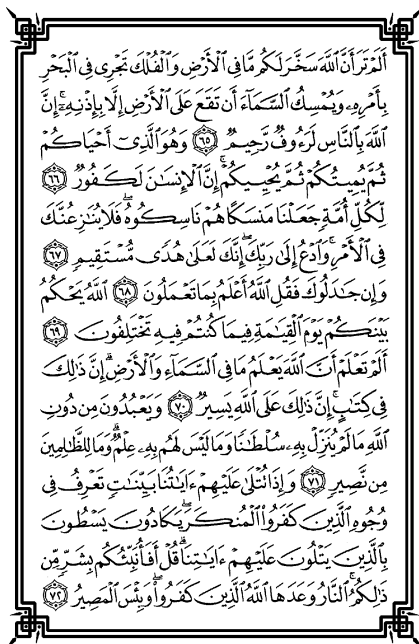 أَلَمْ تَرَ أَنَّ ٱللَّهَ سَخَّرَ لَكُم مَّا فِى ٱلْأَرْضِ وَٱلْفُلْكَ تَجْرِى فِى ٱلْبَحْرِ
بِأَمْرِهِۦ وَيُمْسِكُ ٱلسَّمَآءَ أَن تَقَعَ عَلَى ٱلْأَرْضِ إِلَّا بِإِذْنِهِۦٓ ۗ إِنَّ
ٱللَّهَ بِٱلنَّاسِ لَرَءُوفٌ رَّحِيمٌ ٦٥ وَهُوَ ٱلَّذِىٓ أَحْيَاكُمْ
ثُمَّ يُمِيتُكُمْ ثُمَّ يُحْيِيكُمْ ۗ إِنَّ ٱلْإِنسَٰنَ لَكَفُورٌ ٦٦
لِّكُلِّ أُمَّةٍ جَعَلْنَا مَنسَكًا هُمْ نَاسِكُوهُ ۖ فَلَا يُنَٰزِعُنَّكَ
فِى ٱلْأَمْرِ ۚ وَٱدْعُ إِلَىٰ رَبِّكَ ۖ إِنَّكَ لَعَلَىٰ هُدًى مُّسْتَقِيمٍ ٦٧
وَإِن جَٰدَلُوكَ فَقُلِ ٱللَّهُ أَعْلَمُ بِمَا تَعْمَلُونَ ٦٨ ٱللَّهُ يَحْكُمُ
بَيْنَكُمْ يَوْمَ ٱلْقِيَٰمَةِ فِيمَا كُنتُمْ فِيهِ تَخْتَلِفُونَ ٦٩
أَلَمْ تَعْلَمْ أَنَّ ٱللَّهَ يَعْلَمُ مَا فِى ٱلسَّمَآءِ وَٱلْأَرْضِ ۗ إِنَّ ذَٰلِكَ
فِى كِتَٰبٍ ۚ إِنَّ ذَٰلِكَ عَلَى ٱللَّهِ يَسِيرٌ ٧٠ وَيَعْبُدُونَ مِن دُونِ
ٱللَّهِ مَا لَمْ يُنَزِّلْ بِهِۦ سُلْطَٰنًا وَمَا لَيْسَ لَهُم بِهِۦ عِلْمٌ ۗ وَمَا لِلظَّٰلِمِينَ
مِن نَّصِيرٍ ٧١ وَإِذَا تُتْلَىٰ عَلَيْهِمْ ءَايَٰتُنَا بَيِّنَٰتٍ تَعْرِفُ فِى
وُجُوهِ ٱلَّذِينَ كَفَرُوا۟ ٱلْمُنكَرَ ۖ يَكَادُونَ يَسْطُونَ
بِٱلَّذِينَ يَتْلُونَ عَلَيْهِمْ ءَايَٰتِنَا ۗ قُلْ أَفَأُنَبِّئُكُم بِشَرٍّ مِّن
ذَٰلِكُمُ ۗ ٱلنَّارُ وَعَدَهَا ٱللَّهُ ٱلَّذِينَ كَفَرُوا۟ ۖ وَبِئْسَ ٱلْمَصِيرُ ٧٢